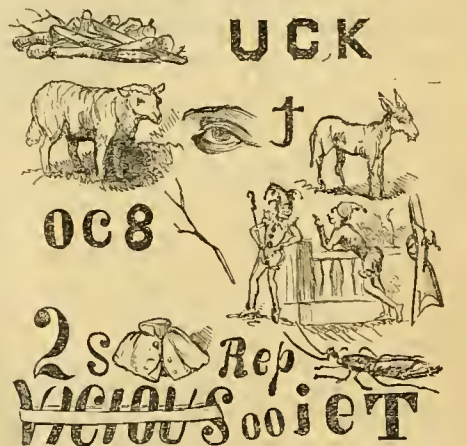 UCK
t
OC8
2 s Rep
VICIOUS oo j e T